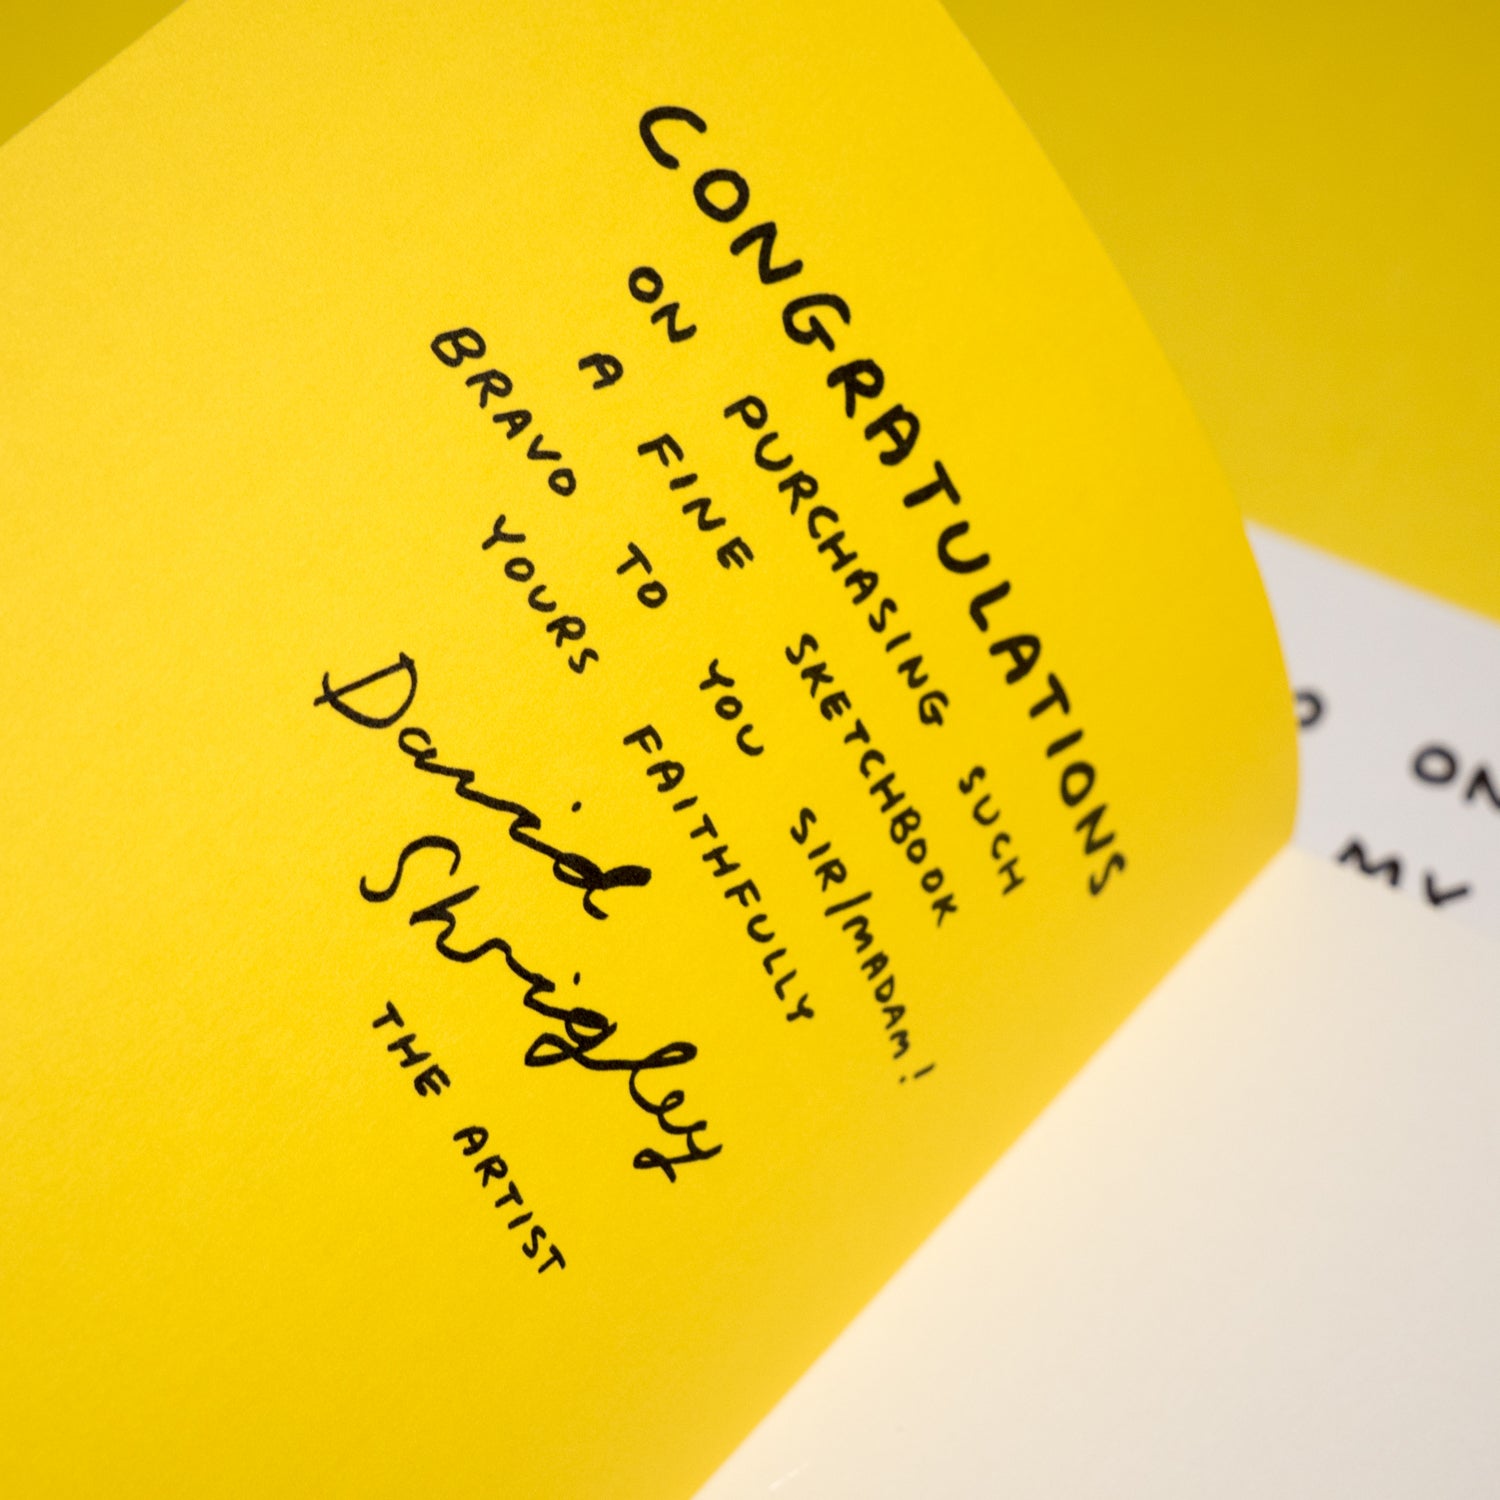 CONGRATULATIONS
ON PURCHASING SUCH
A FINE SKETCHBOOK
BRAVO TO YOU SIR/MADAM!
YOURS FAITHFULLY
David
Shrigley
THE ARTIST
ON
MY